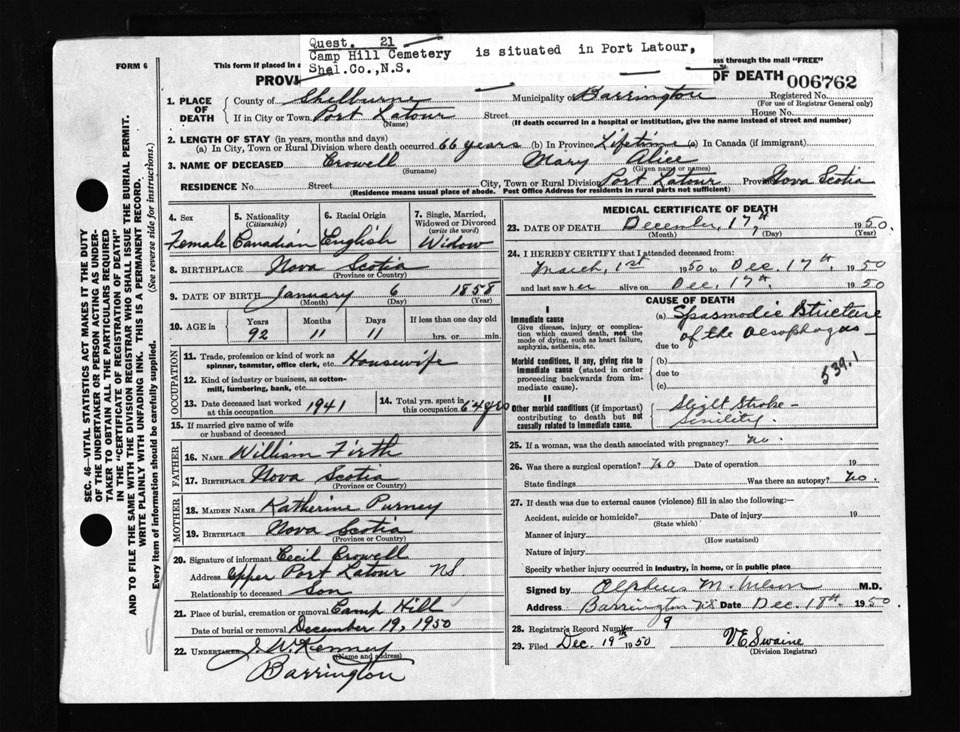 Quest. 21
Camp Hill Cemetery is situated in Port Latour,
Shel.Co.,N.S.
FORM 6
This form if placed in a
ss through the mail "FREE"
PROVI
OF DEATH 006762
1. PLACE OF DEATH
County of Shelburne Municipality of Barrington Registered No.
(For use of Registrar General only)
If in City or Town Port Latour Street House No.
(Name) (If death occurred in a hospital or institution, give the name instead of street and number)
2. LENGTH OF STAY (in years, months and days)
(a) In City, Town or Rural Division where death occurred 66 years (b) In Province Lifetime (c) In Canada (if immigrant)
3. NAME OF DECEASED Crowell Mary Alice
(Surname) (Given name or names)
RESIDENCE No. Street City, Town or Rural Division Port Latour Province Nova Scotia
(Residence means usual place of abode. Post Office Address for residents in rural parts not sufficient)
4. Sex Female
5. Nationality (Citizenship) Canadian
6. Racial Origin English
7. Single, Married, Widowed or Divorced (write the word) Widow
8. BIRTHPLACE Nova Scotia
(Province or Country)
9. DATE OF BIRTH January 6 1858
(Month) (Day) (Year)
10. AGE in Years Months Days If less than one day old
92 11 11 hrs. or min.
OCCUPATION
11. Trade, profession or kind of work as spinner, teamster, office clerk, etc. Housewife
12. Kind of industry or business, as cotton-mill, lumbering, bank, etc.
13. Date deceased last worked at this occupation 1941
14. Total yrs. spent in this occupation 64 yrs
15. If married give name of wife or husband of deceased
FATHER
16. Name William Firth
17. Birthplace Nova Scotia
(Province or Country)
MOTHER
18. Maiden Name Katherine Purney
19. Birthplace Nova Scotia
(Province or Country)
20. Signature of informant Cecil Crowell
Address Upper Port Latour NS
Relationship to deceased Son
21. Place of burial, cremation or removal Camp Hill
Date of burial or removal December 19, 1950
22. UNDERTAKER J. W. Kenney
(Name and address)
Barrington
MEDICAL CERTIFICATE OF DEATH
23. DATE OF DEATH December, 17th, 1950
(Month) (Day) (Year)
24. I HEREBY CERTIFY that I attended deceased from:
March, 1st 1950 to Dec. 17th, 1950
and last saw her alive on Dec, 17th. 1950
CAUSE OF DEATH
I
Immediate cause
Give disease, injury or complication which caused death, not the mode of dying, such as heart failure, asphyxia, asthenia, etc.
(a) Spasmodic Stricture
of the Oesophagus
due to
Morbid conditions, if any, giving rise to immediate cause (stated in order proceeding backwards from immediate cause).
(b)
due to
(c)
539.1
II
Other morbid conditions (if important) contributing to death but not causally related to immediate cause.
Slight Stroke -
Senility.
25. If a woman, was the death associated with pregnancy? no.
26. Was there a surgical operation? No Date of operation 19
State findings Was there an autopsy? No.
27. If death was due to external causes (violence) fill in also the following:-
Accident, suicide or homicide? Date of injury 19
(State which)
Manner of injury
(How sustained)
Nature of injury
Specify whether injury occurred in industry, in home, or in public place
Signed by Alpheus M. Wilson M.D.
Address Barrington NS Date Dec. 18th. 1950.
28. Registrar's Record Number 9
29. Filed Dec. 19th 1950 V.E Swaine
(Division Registrar)
SEC. 46—VITAL STATISTICS ACT MAKES IT THE DUTY
OF THE UNDERTAKER OR PERSON ACTING AS UNDER-
TAKER TO OBTAIN ALL THE PARTICULARS REQUIRED
IN THE "CERTIFICATE OF REGISTRATION OF DEATH"
AND TO FILE THE SAME WITH THE DIVISION REGISTRAR WHO SHALL ISSUE THE BURIAL PERMIT.
WRITE PLAINLY WITH UNFADING INK. THIS IS A PERMANENT RECORD.
Every item of information should be carefully supplied. (See reverse side for instructions.)